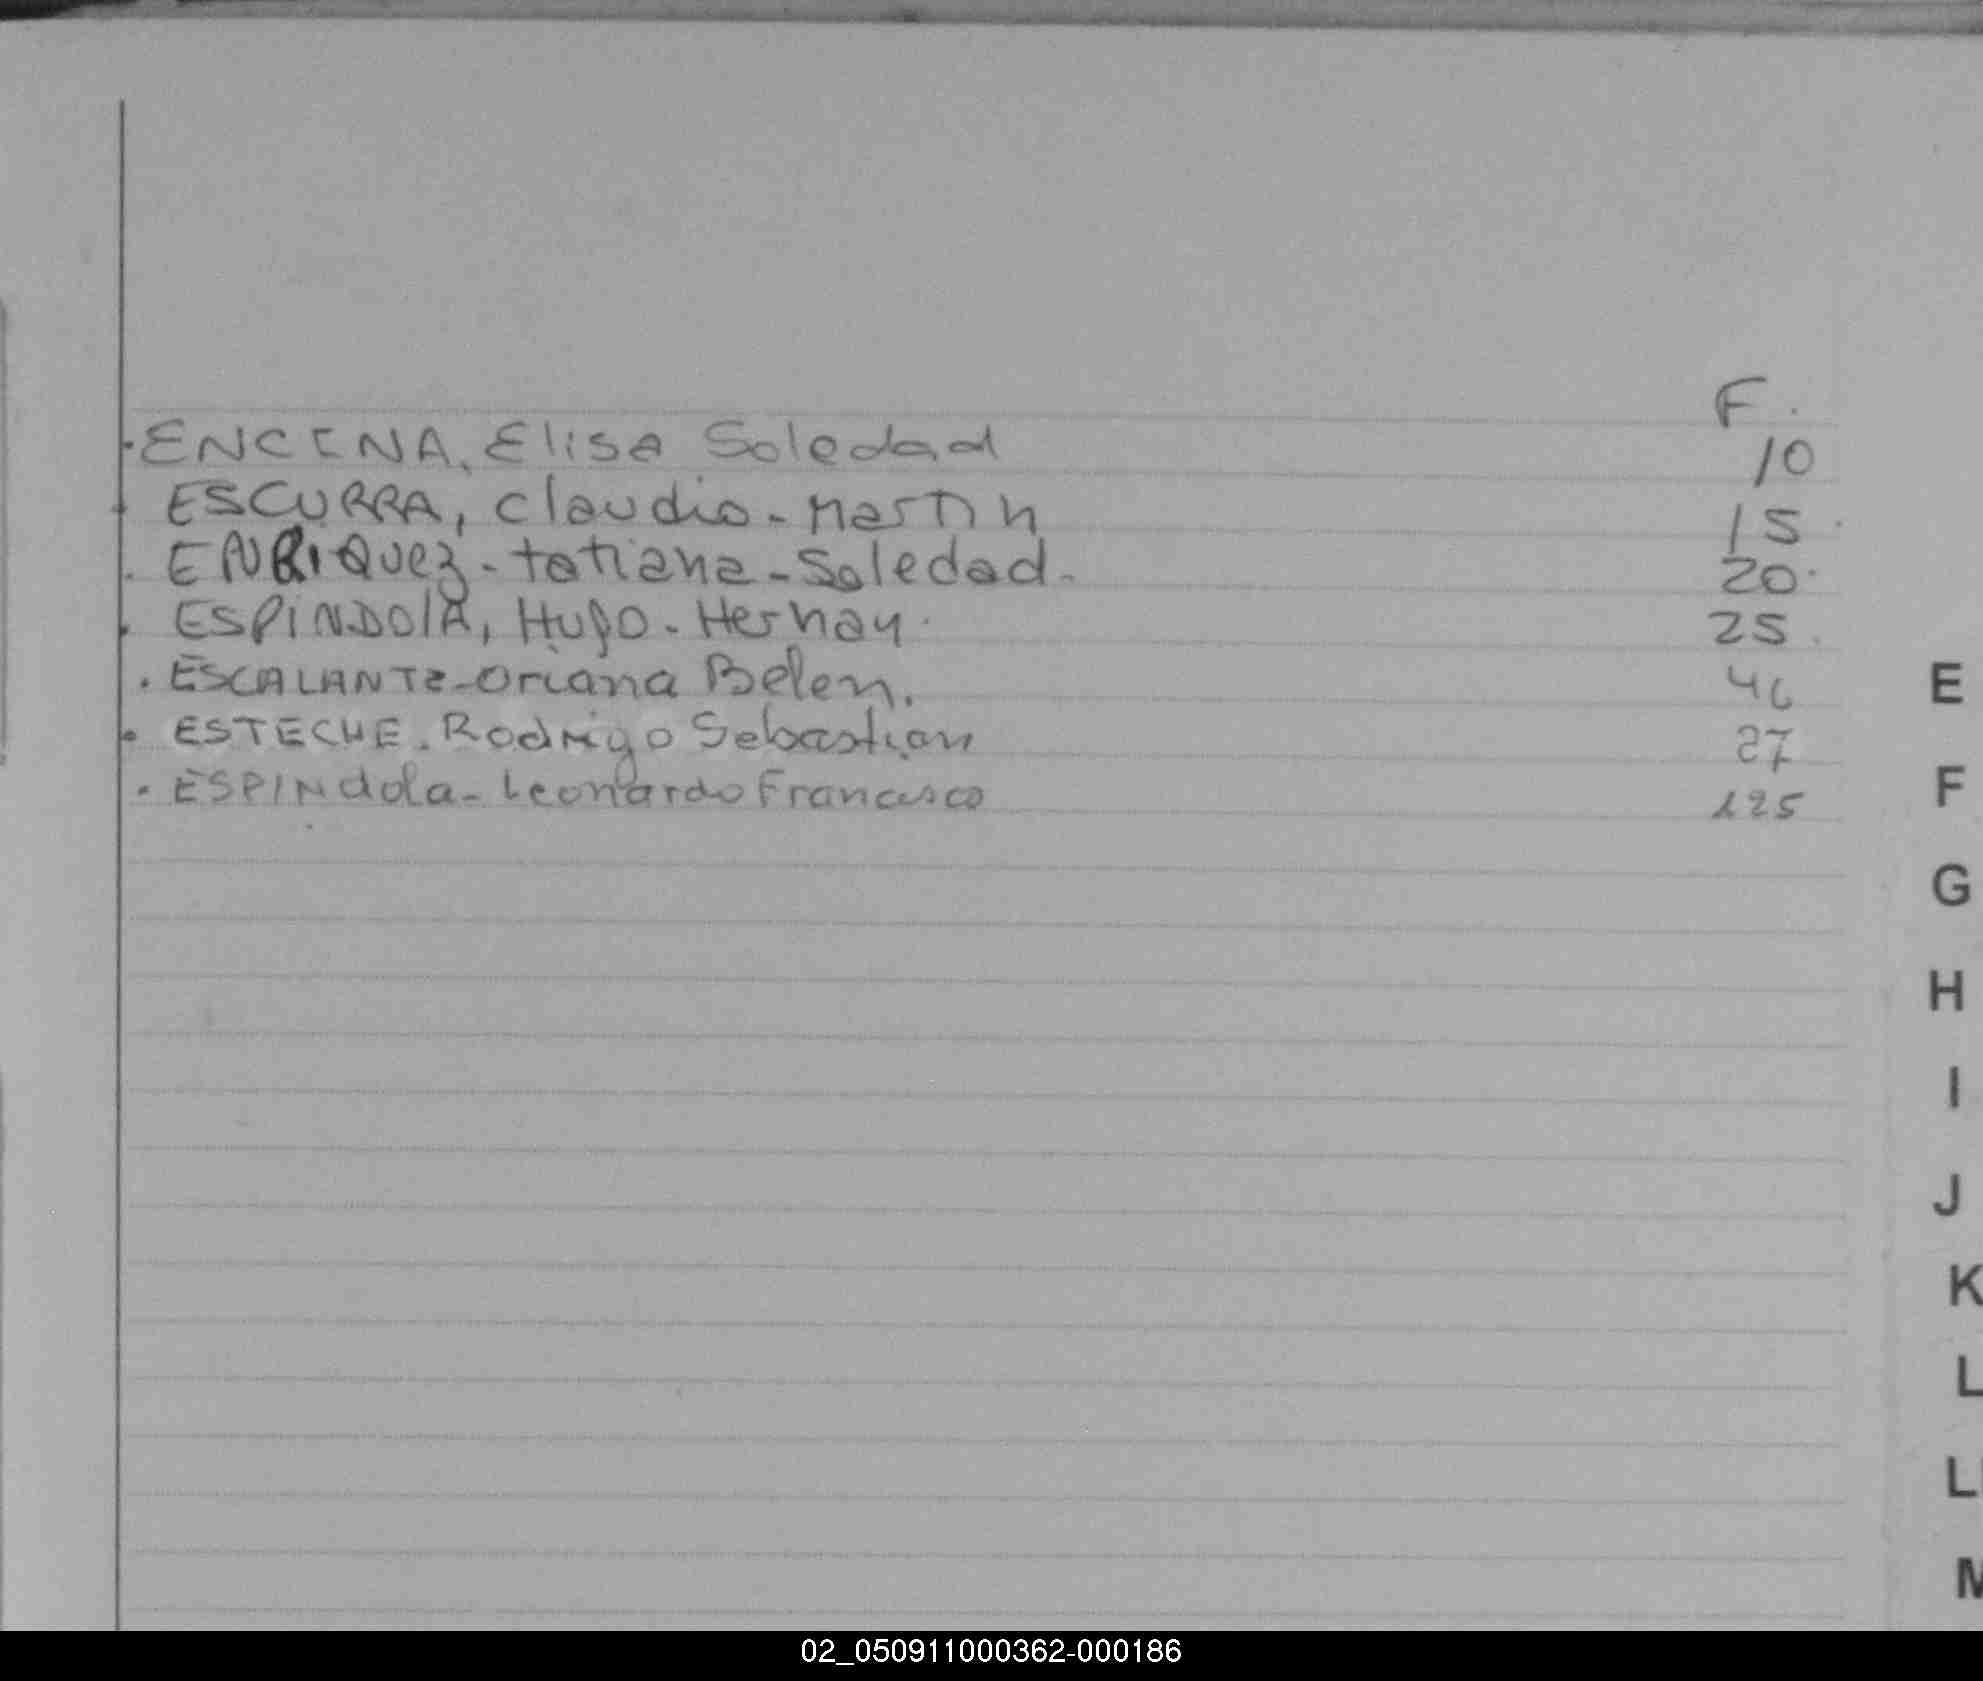 F.
·ENCINA, Elisa Soledad 10
ESCURRA, Claudio-Martin 15
. ENRIQuez-tatiana-Soledad- 20
. ESPINDOlA, Hugo-Hernan. 25
. ESCALANTE-Oriana Belen. 46
. ESTECHE. Rodrigo Sebastian 87
. ESPINdola-Leonardo Francisco 125
E
F
G
H
I
J
K
L
LL
M
02_050911000362-000186